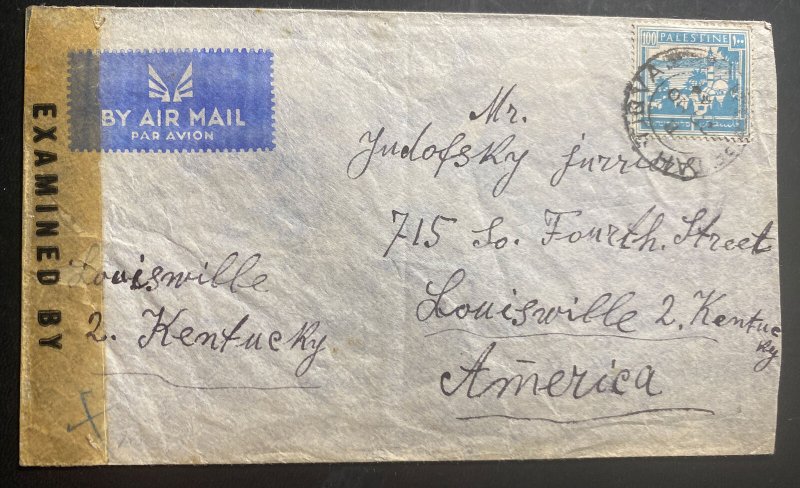 EXAMINED BY
BY AIR MAIL
PAR AVION
100 PALESTINE ١٠٠
فلسطين
Mr.
Judofsky furriers
715 So. Fourth. Street
Louisville 2. Kentuc
ky
America
Louisville
2. Kentucky
X